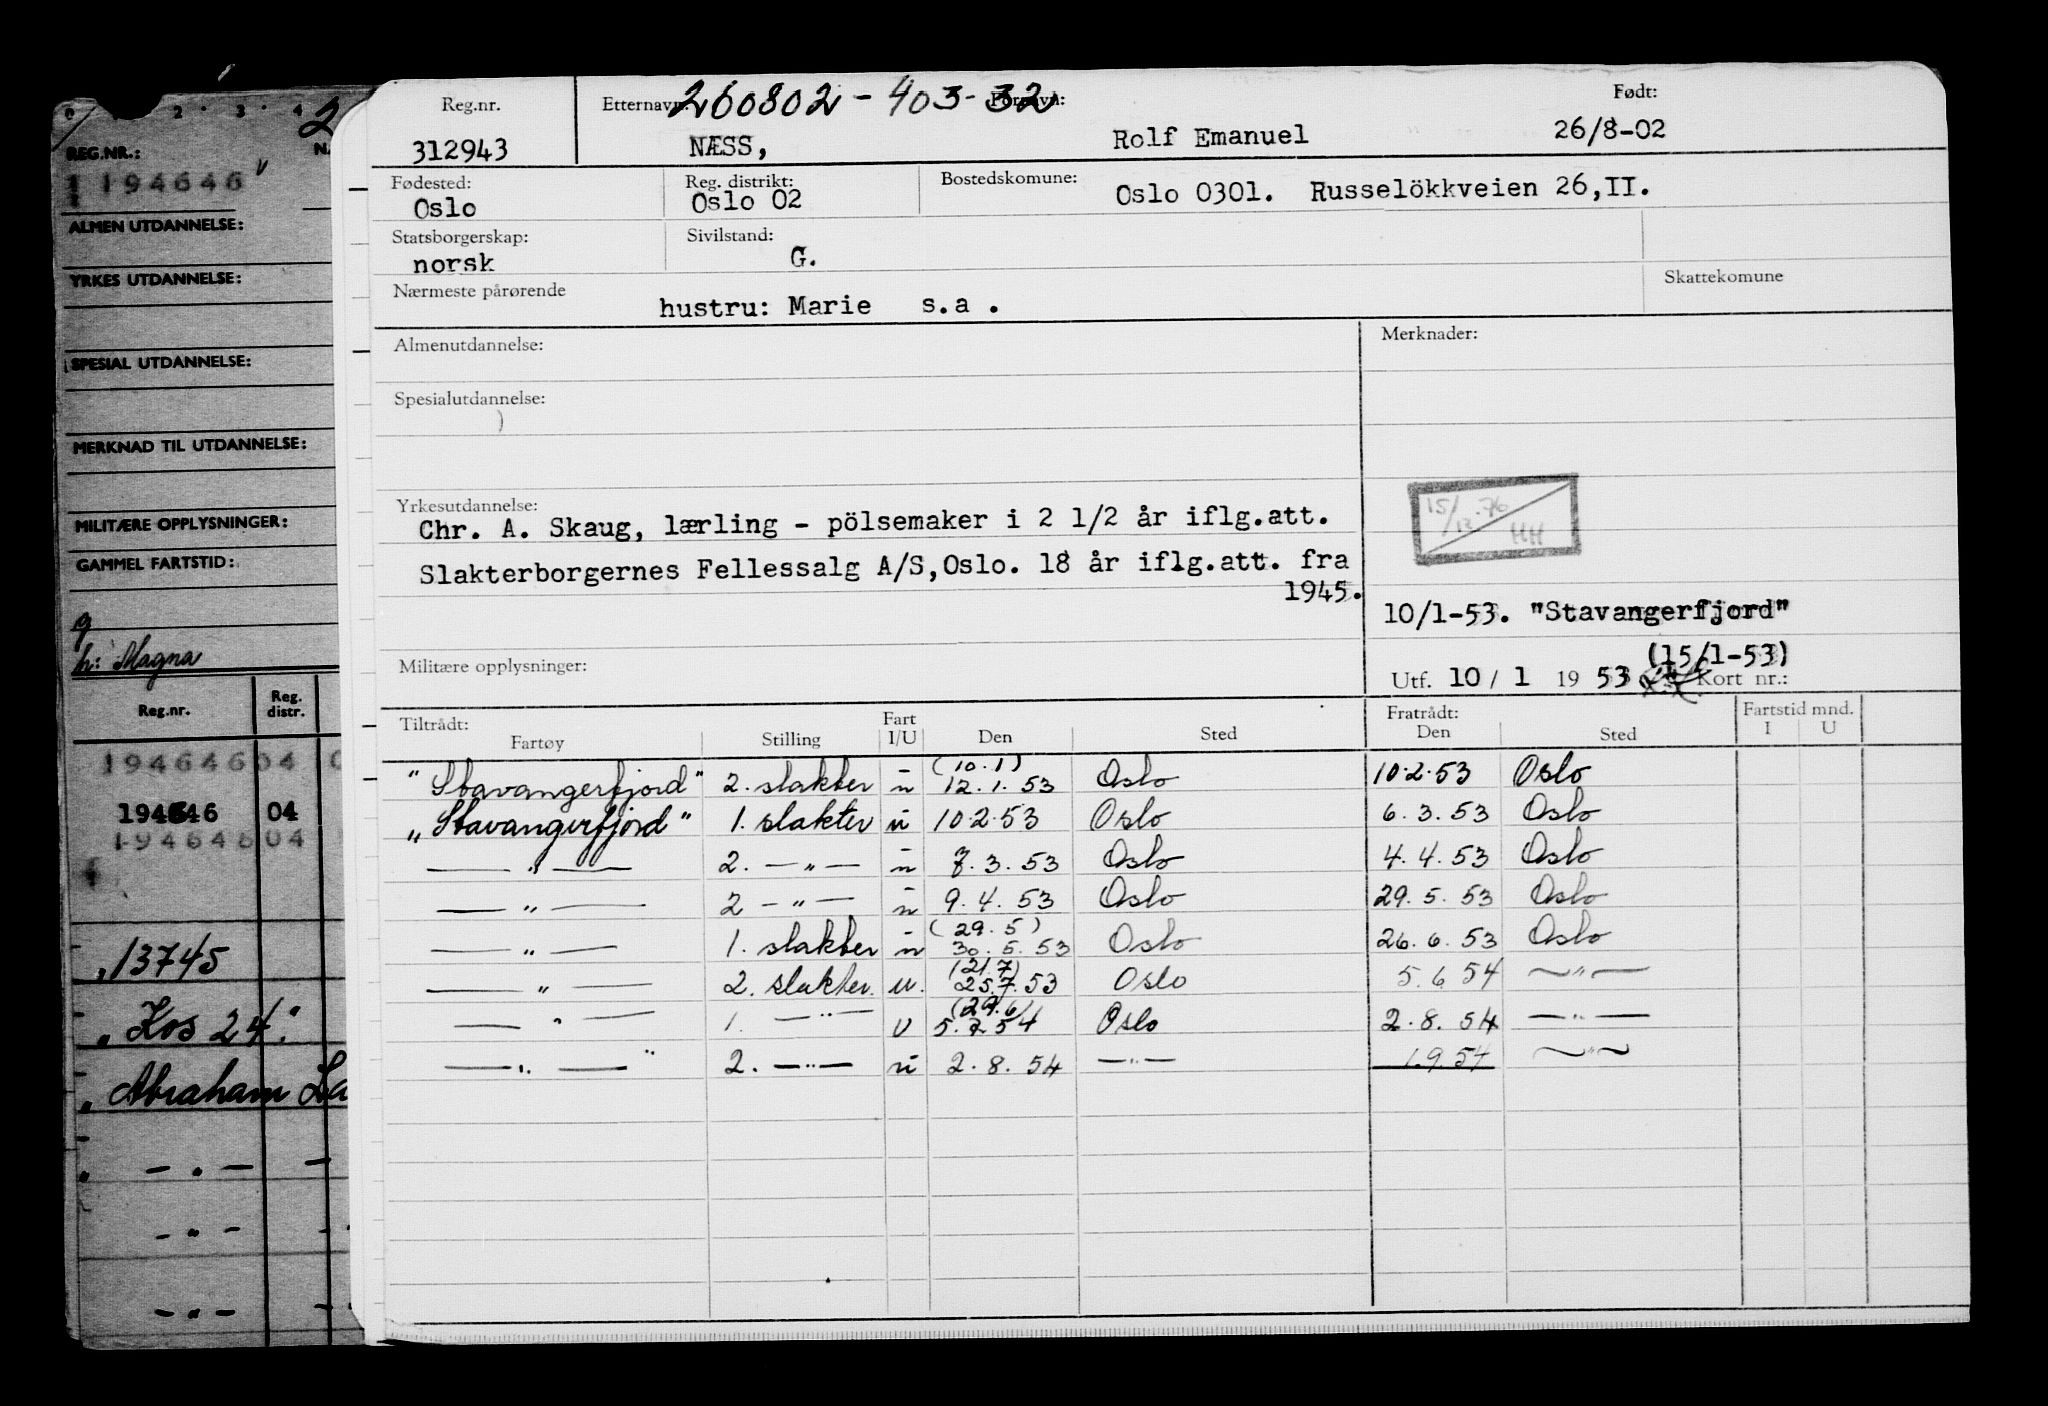 0 2 3 4
2
REG.NR.:
194646 v
ALMEN UTDANNELSE:
YRKES UTDANNELSE:
SPESIAL UTDANNELSE:
MERKNAD TIL UTDANNELSE:
MILITÆRE OPPLYSNINGER:
GAMMEL FARTSTID:
g
h: Magna
Reg.nr. Reg. distr.
194646 04
194646 04
194646 04
13745
"Kos 24".
" Abraham
260802 - 403-32
Reg.nr. Etternavn: Fornavn: Født:
312943 NÆSS, Rolf Emanuel 26/8-02
Fødested: Reg. distrikt: Bostedskomune:
Oslo Oslo 02 Oslo 0301. Russelökkveien 26,II.
Statsborgerskap: Sivilstand:
norsk G.
Nærmeste pårørende Skattekomune
hustru: Marie s.a .
Almenutdannelse: Merknader:
Spesialutdannelse:
)
15/12.76 HH
Yrkesutdannelse:
Chr. A. Skaug, lærling - pölsemaker i 2 1/2 år iflg.att.
Slakterborgernes Fellessalg A/S,Oslo. 18 år iflg.att. fra
1945.
10/1-53. "Stavangerfjord"
(15/1-53)
Militære opplysninger: Utf. 10 / 1 19 53 Kort nr.:
Tiltrådt: Fart Fratrådt: Fartstid mnd.
Fartøy Stilling I/U Den Sted Den Sted I U
"Stavangerfjord" 2. slakter u (10.1) 12.1.53 Oslo 10.2.53 Oslo
"Stavangerfjord" 1. slakter u 10.2.53 Oslo 6.3.53 Oslo
— " — 2. — " — u 7.3.53 Oslo 4.4.53 Oslo
— " — 2 — " — u 9.4.53 Oslo 29.5.53 Oslo
— " — 1. slakter u (29.5) 30.5.53 Oslo 26.6.53 Oslo
— " — 2. slakter. u. (21.7) 25.7.53 Oslo 5.6.54 — " —
— " — 1. — " — U (29.6) 5.7.54 Oslo 2.8.54 — " —
— " — 2. — " — u 2.8.54 — " — 1.9.54 — " —